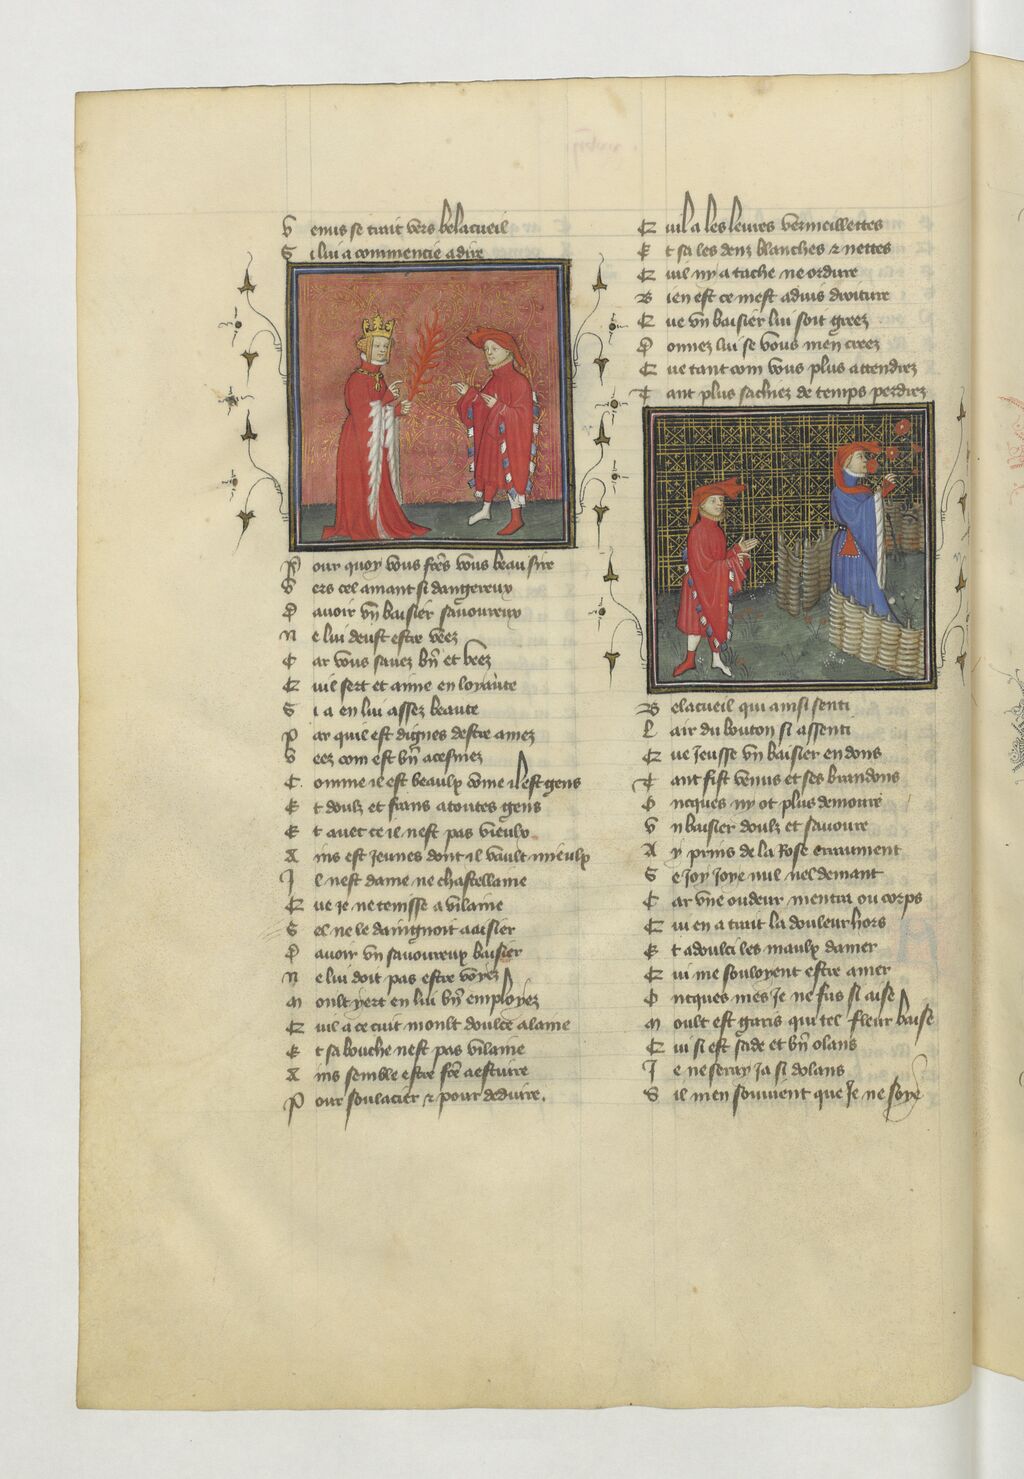 Venus se trait vers belacueil
Si lui a commencie a dire
Pour quoy vous fctes vous beau sire
Vers cel amant si dangereux
Davoir vn baisier sauoureux
Ne lui deust estre veez
Car vous sauez bn et veez
Quil sert et aime en loyaute
Si a en lui assez beaute
Par quil est dignes destre amez
Veez com est bn acesmez
Comme il est beaulx come il est gens
Et doulz et frans a toutes gens
Et auec ce il nest pas vieulx
Ains est Jeunes dont il vault mieulx
Il nest dame ne chastellaine
Que je ne tenisse a vilaine
Sel ne le daingnoit aaisier
Dauoir vn sauoureux baisier
Ne lui doit pas estre voyez
Moult yert en lui bn employez
Quil a ce cuit moult doulce alaine
Et sa bouche nest pas vilaine
Ains semble estre fcte a estuire
Pour soulacier & pour deduire.
Quil a les leures vermeillettes
Et sa les denz blanches & nettes
Quil ny a tache ne ordure
Bien est ce mest aduis droiture
Que vn baisier lui soit greez
Donnez lui se vous men creez
Que tant com vous plus attendrez
Tant plus sachiez de temps perdrez
Belacueil qui ainsi senti
Lair du bouton si assenti
Que Jeusse vn baisier en dons
Tant fist venus et ses brandons
Oncques ny ot plus demoure
Vn baisier doulz et sauoure
Ay prins de la Rose erraument
Se Joy Joye nul nel demant
Car vne oudeur mentra ou corps
Qui en a trait la douleur hors
Et adoulci les maulx damer
Qui me souloyent estre amer
Oncques mes Je ne fus si aise
Moult est garis qui tel fleur baise
Qui si est sade et bn olans
Je ne seray Ja si dolans
Sil men souuient que Je ne soye